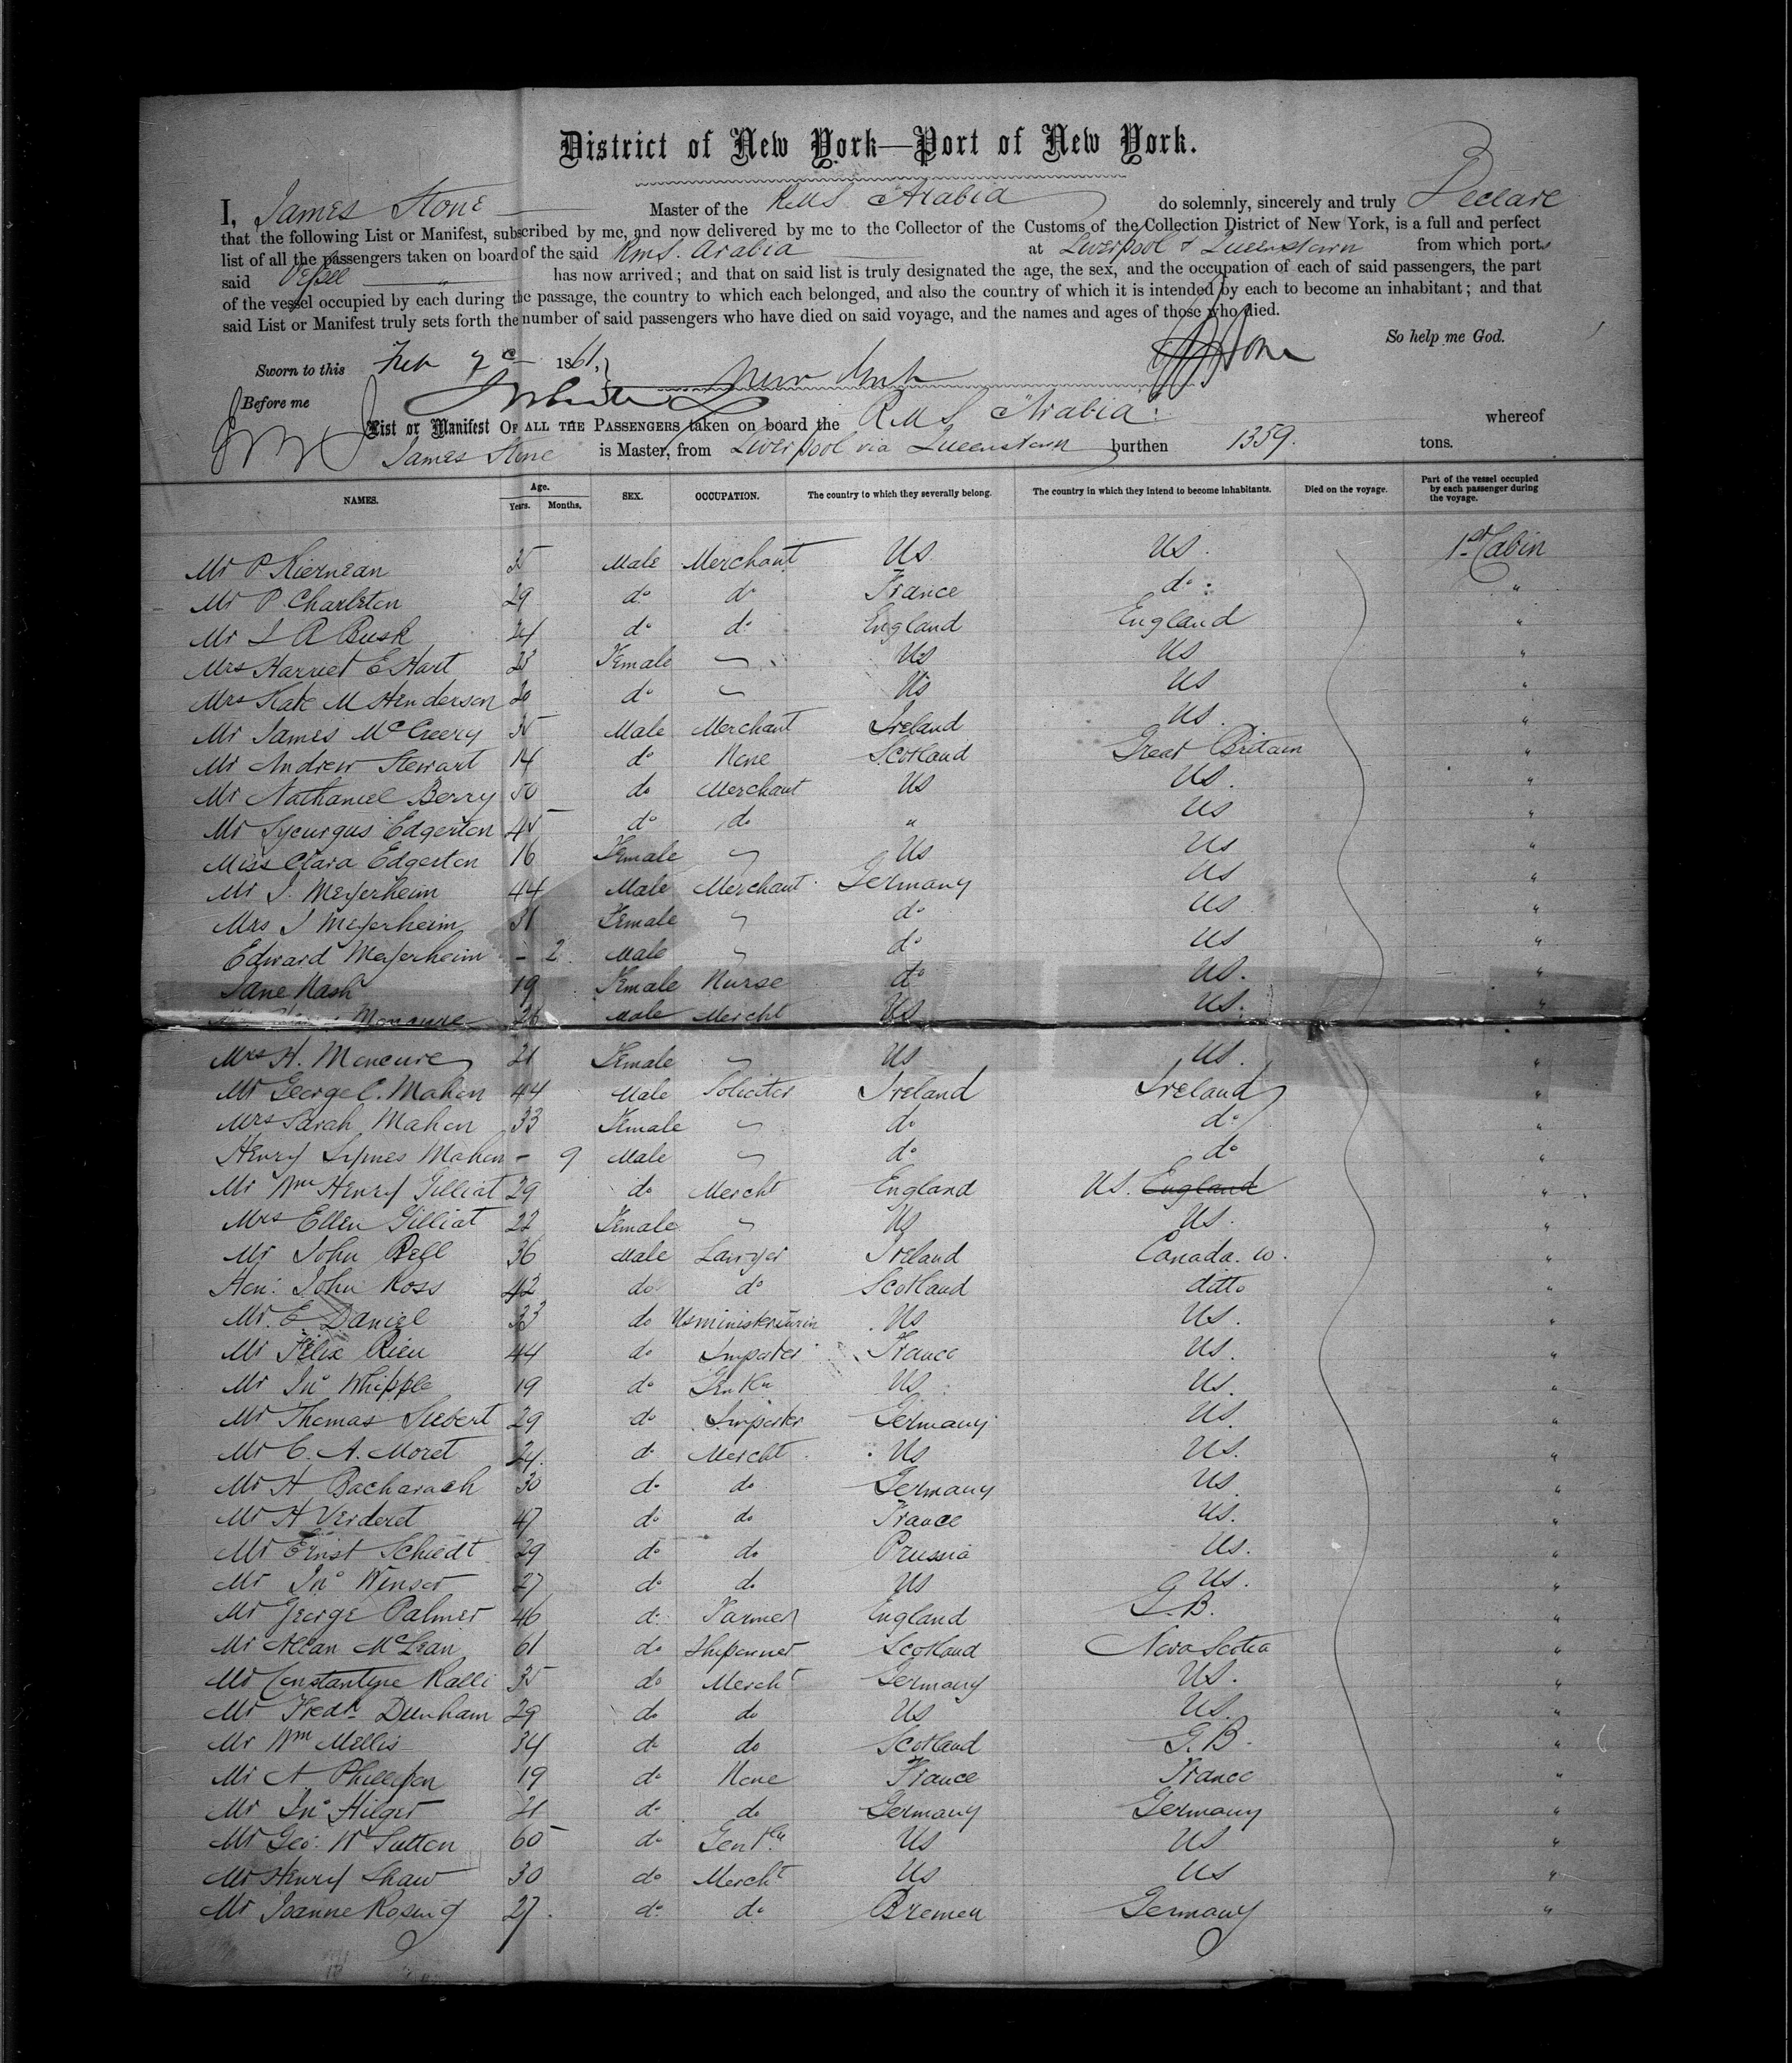 District of New York—Port of New York.
I, James Stone Master of the R.M.S. Arabia do solemnly, sincerely and truly Declare
that the following List or Manifest, subscribed by me, and now delivered by me to the Collector of the Customs of the Collection District of New York, is a full and perfect
list of all the passengers taken on board of the said R.M.S. Arabia at Liverpool & Queenstown from which ports
said Vessel has now arrived; and that on said list is truly designated the age, the sex, and the occupation of each of said passengers, the part
of the vessel occupied by each during the passage, the country to which each belonged, and also the country of which it is intended by each to become an inhabitant; and that
said List or Manifest truly sets forth the number of said passengers who have died on said voyage, and the names and ages of those who died.
So help me God.
Sworn to this Feb 1861, New York Stone
Before me
List or Manifest OF ALL THE PASSENGERS taken on board the R.M.S. Arabia whereof
James Stone is Master, from Liverpool via Queenstown burthen 1359. tons.
NAMES. Age. Years. Months. SEX. OCCUPATION. The country to which they severally belong. The country in which they intend to become inhabitants. Died on the voyage. Part of the vessel occupied by each passenger during the voyage.
Mr P Kiernean 35 Male Merchant US US. 1st Cabin
Mr P. Charleton 29 do do France do "
Mr I A Busk 24 do do England England "
Mrs Harriet E Hart 23 Female US US "
Mrs Kate M Henderson 20 do US US "
Mr James McCreery 35 Male Merchant Ireland US. "
Mr Andrew Stewart 14 do None Scotland Great Britain "
Mr Nathaniel Berry 50 do Merchant US US. "
Mr Lycurgus Edgerton 45 do do " US "
Miss Clara Edgerton 16 Female US US "
Mr I. Meyerheim 44 Male Merchant Germany US "
Mrs I Meyerheim 31 Female do US "
Edward Meyerheim - 2 Male do US "
Jane Nash 19 Female Nurse do US. "
Moncure 26 Male Mercht US US. "
Mrs H. Moncure 21 Female US US. "
Mr George C. Mahon 44 Male Soliciter Ireland Ireland "
Mrs Sarah Mahon 33 Female do do "
Henry Symes Mahon - 9 Male do do "
Mr Wm Henry Gilliat 29 do Mercht England US. England "
Mrs Ellen Gilliat 22 Female US US. "
Mr John Bell 36 Male Lawyer Ireland Canada. W. "
Hon: John Ross 42 do do Scotland ditto "
Mr. E Daniel 33 do US minister Turin US US. "
Mr Felix Rieu 44 do Importer France US. "
Mr Jno Whipple 19 do US US. "
Mr Thomas Siebert 29 do Importer Germany US. "
Mr C. A. Moret 24. do Mercht US US. "
Mr H Bacharach 30 do do Germany US "
Mr H Verderet 47 do do France US. "
Mr Ernst Schiedt 29 do do Prussia US. "
Mr Jno Winsor 27 do do US US. "
Mr George Palmer 46 do Farmer England G.B. "
Mr Allan McLean 61 do Shipowner Scotland Nova Scotia "
Mr Constantyne Ralli 35 do Mercht Germany US. "
Mr Fredk Dunham 29 do do US US. "
Mr Wm Mellis 34 do do Scotland G.B. "
Mr A Phillipon 19 do None France France "
Mr Jno Hilger 21 do do Germany Germany "
Mr Geo: W Sutton 60 do Gentln US US "
Mr Henry Shaw 30 do Mercht US US "
Mr Joanne Rosing 27. do do Bremen Germany "